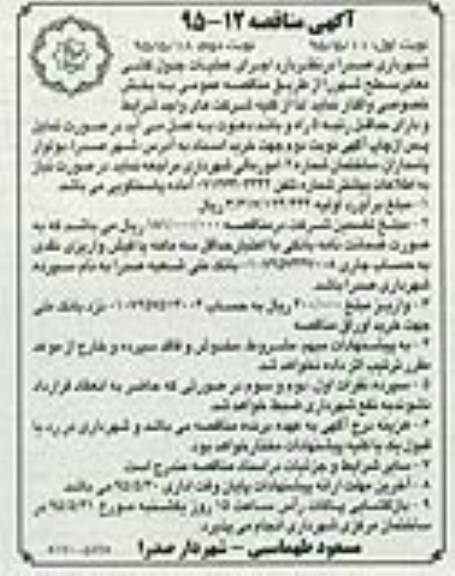 آگهی مناقصه ۱۲-۹۵
نوبت اول: ۹۵/۵/۱۱ نوبت دوم: ۹۵/۵/۱۸
شهرداری صدرا در نظر دارد اجرای عملیات جدول کشی
معابر سطح شهر را از طریق مناقصه عمومی به بخش
خصوصی واگذار نماید لذا از کلیه شرکت های واجد شرایط
و دارای حداقل رتبه ۵ راه و باند دعوت به عمل می آید در صورت تمایل
پس از چاپ آگهی نوبت دوم جهت خرید اسناد به آدرس شهر صدرا بولوار
پاسداران ساختمان شماره ۲ امور مالی شهرداری مراجعه نماید در صورت نیاز
به اطلاعات بیشتر شماره تلفن آماده پاسخگویی می باشد
۱- مبلغ برآورد اولیه ریال
۲- مبلغ تضمین شرکت در مناقصه ریال می باشد که به
صورت ضمانت نامه بانکی با اعتبار حداقل سه ماهه یا فیش واریزی نقدی
به حساب جاری بانک ملی شعبه صدرا به نام سپرده
شهرداری صدرا باشد
۳- واریز مبلغ ریال به حساب نزد بانک ملی
جهت خرید اوراق مناقصه
۴- به پیشنهادات مبهم مشروط مخدوش و فاقد سپرده و خارج از موعد
مقرر ترتیب اثر داده نخواهد شد
۵- سپرده نفرات اول، دوم و سوم در صورتی که حاضر به انعقاد قرارداد
نشوند به نفع شهرداری ضبط خواهد شد
۶- هزینه درج آگهی به عهده برنده مناقصه می باشد و شهرداری در رد یا
قبول یک یا کلیه پیشنهادات مختار خواهد بود
۷- سایر شرایط و جزئیات در اسناد مناقصه مندرج است
۸- آخرین مهلت ارائه پیشنهادات پایان وقت اداری ۹۵/۵/۳۰ می باشد
۹- بازگشایی پاکات رأس ساعت ۱۵ روز یکشنبه مورخ ۹۵/۵/۳۱ در
ساختمان مرکزی شهرداری انجام می پذیرد
مسعود طهماسبی - شهردار صدرا